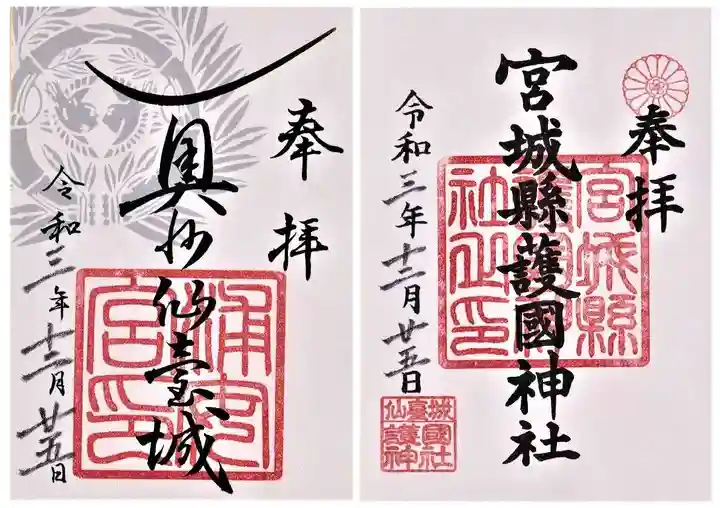 奉拝
奥州仙臺城
令和三年十二月廿五日
浦安宮印
奉拝
宮城縣護國神社
令和三年十二月廿五日
宮城縣護國神社之印
仙臺城護國神社